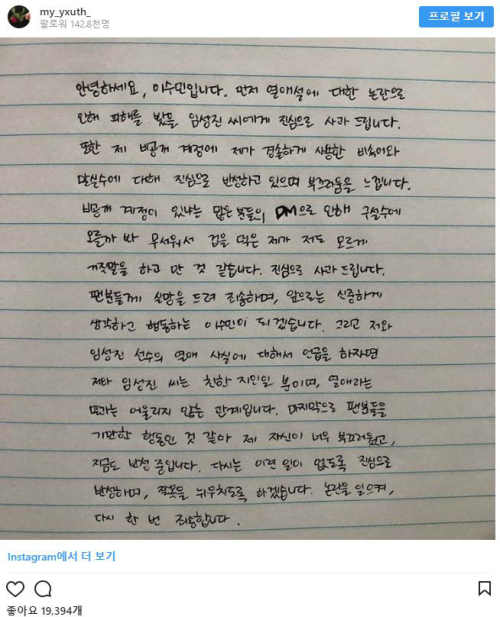 my_yxuth_
팔로워 142.8천명
프로필 보기
안녕하세요, 이수민입니다. 먼저 열애설에 대한 논란으로
인해 피해를 받았을 임성진 씨에게 진심으로 사과 드립니다.
또한 제 비공개 계정에 제가 경솔하게 사용한 비속어와
말실수에 대해 진심으로 반성하고 있으며 부끄러움을 느낍니다.
비공개 계정이 있냐는 많은 분들의 DM으로 인해 구설수에
오를까 봐 무서워서 겁을 먹은 제가 저도 모르게
거짓말을 하고 만 것 같습니다. 진심으로 사과 드립니다.
팬분들께 실망을 드려 죄송하며, 앞으로는 신중하게
생각하고 행동하는 이수민이 되겠습니다. 그리고 저와
임성진 선수의 열애 사실에 대해서 언급을 하자면
저와 임성진 씨는 친한 지인일 뿐이며, 열애라는
말과는 어울리지 않는 관계입니다. 마지막으로 팬분들을
기만한 행동인 것 같아 제 자신이 너무 부끄러웠고,
지금도 반성 중입니다. 다시는 이런 일이 없도록 진심으로
반성하며, 잘못을 뉘우치도록 하겠습니다. 논란을 일으켜,
다시 한 번 죄송합니다.
Instagram에서 더 보기
좋아요 19,394개